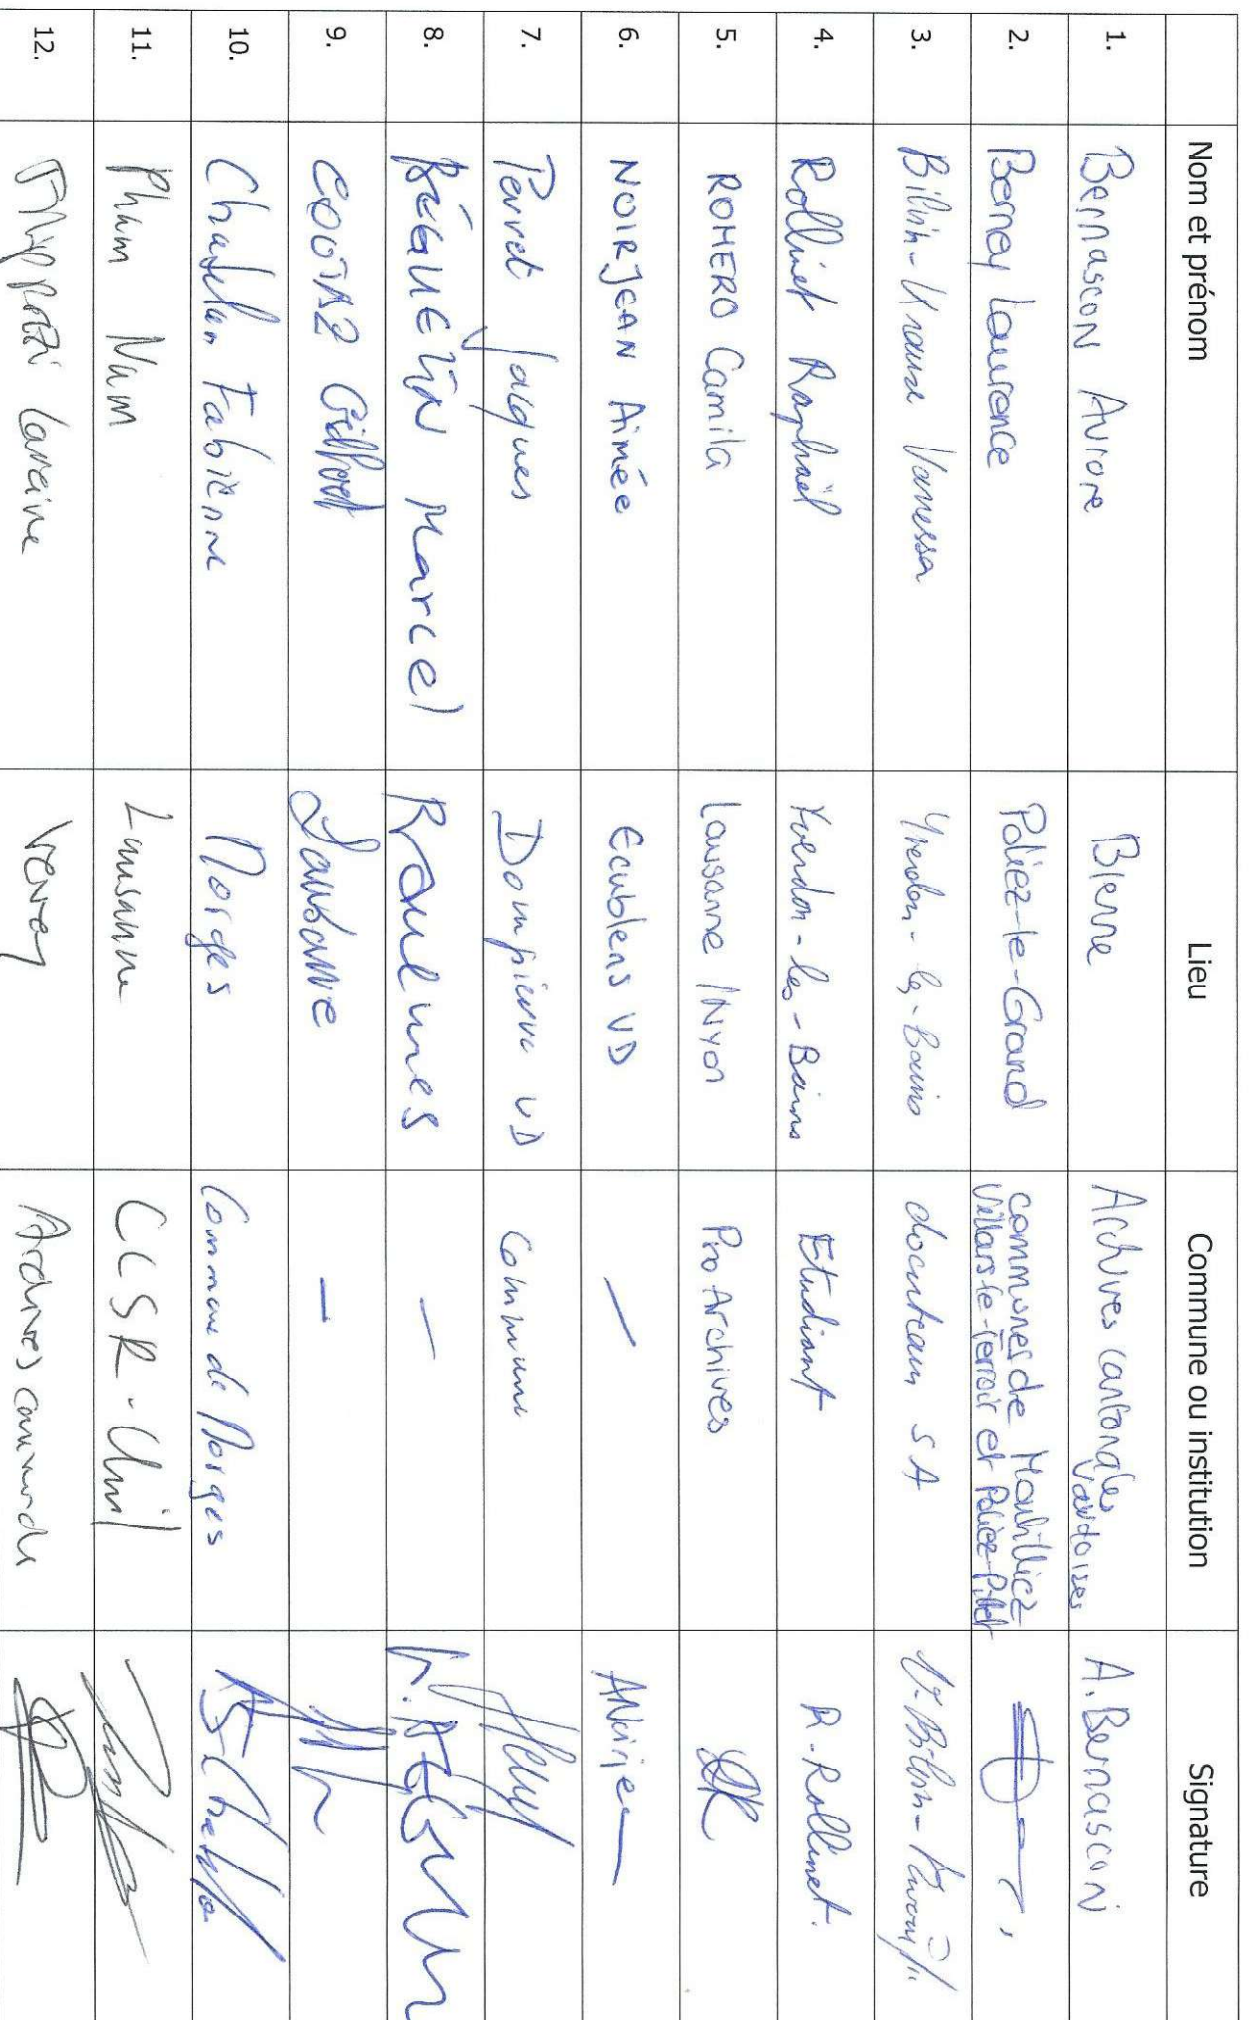 Nom et prénom Lieu Commune ou institution Signature
1. Bernascon Aurore Bienne Archives cantonales vaudoises A. Bernasconi
2. Berney Laurence Poliez-le-Grand communes de Montilliez
Villars-le-Terroir et Poliez-Pittet
3. Vanessa Yverdon-les-Bains docuteam SA
4. Rollinet Raphaël Yverdon-les-Bains Etudiant R. Rollinet.
5. ROMERO Camila Lausanne / Nyon Pro Archives
6. NOIRJEAN Aimée Ecublens VD — ANoirjean
7. Perret Jacques Dompierre VD Commune
8. BÉGUELIN Marcel Baulmes —
9. COUTAZ Gilbert Lausanne —
10. Chatelan Fabienne Morges Commune de Morges
11. Pham Nam Lausanne CCSR - Unil
12. Filippozzi Laraine Vevey Archives communale